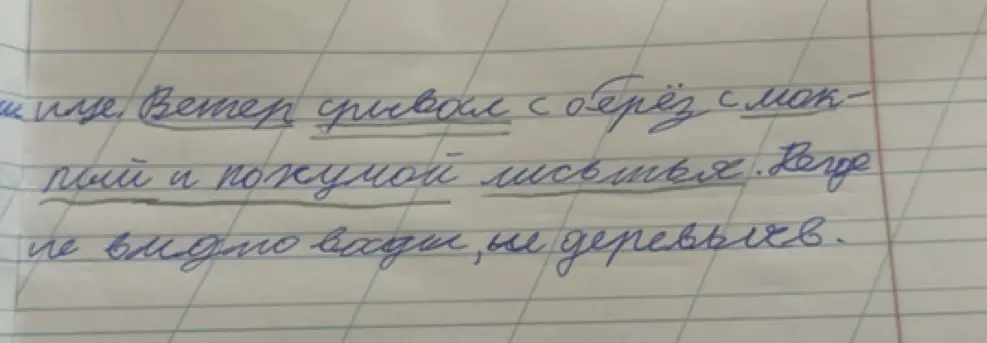 ище. Ветер срывал с оберёз смок-
ный и пожумой лисьтья. Негде
не видно воды, не деревьяев.